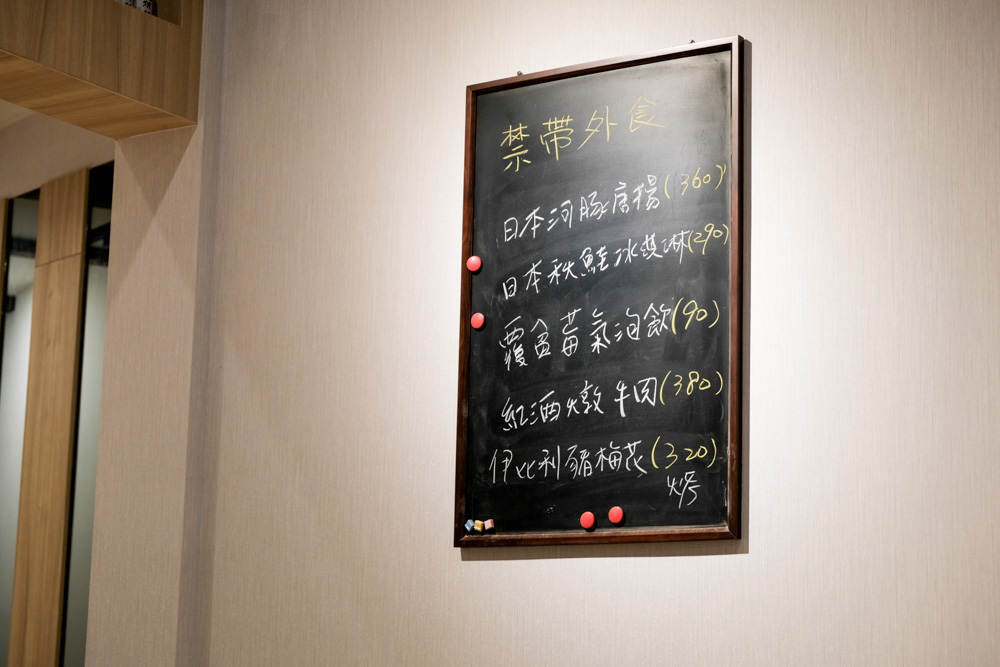 禁帶外食
日本河豚唐揚(360)
日本秋鮭冰淇淋(290)
覆盆莓氣泡飲(90)
紅酒燉牛肉(380)
伊比利豬梅花(320)
烤